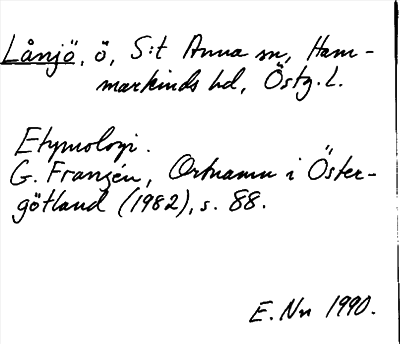 Lånjö, ö, S:t Anna sn, Ham-
markinds hd, Östg. L.
Etymologi.
G. Franzén, Ortnamn i Öster-
götland (1982), s. 88.
E. Nn 1990.